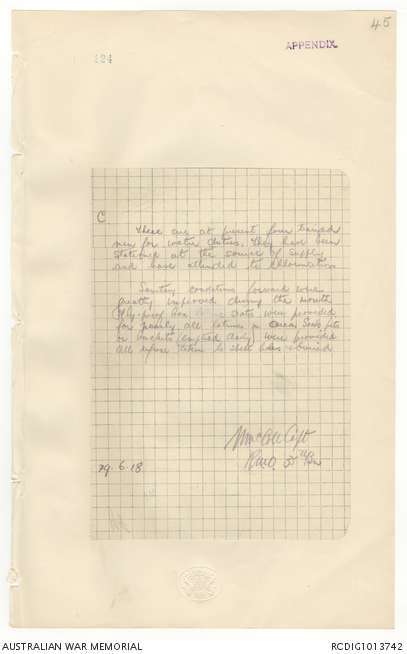 45
APPENDIX
124
C
There are at present four trained
men for water duties. They have been
stationed at the source of supply
and have attended to chlorination
Sanitary conditions forward were
greatly improved during the month
Fly-proof box seats were provided
for nearly all latrines in area, Soak pits
or buckets (emptied daily) were provided
All refuse taken to shell holes & buried
Capt
RMO 35th Bn
29.6.18
AUSTRALIAN WAR MEMORIAL
RCDIG1013742